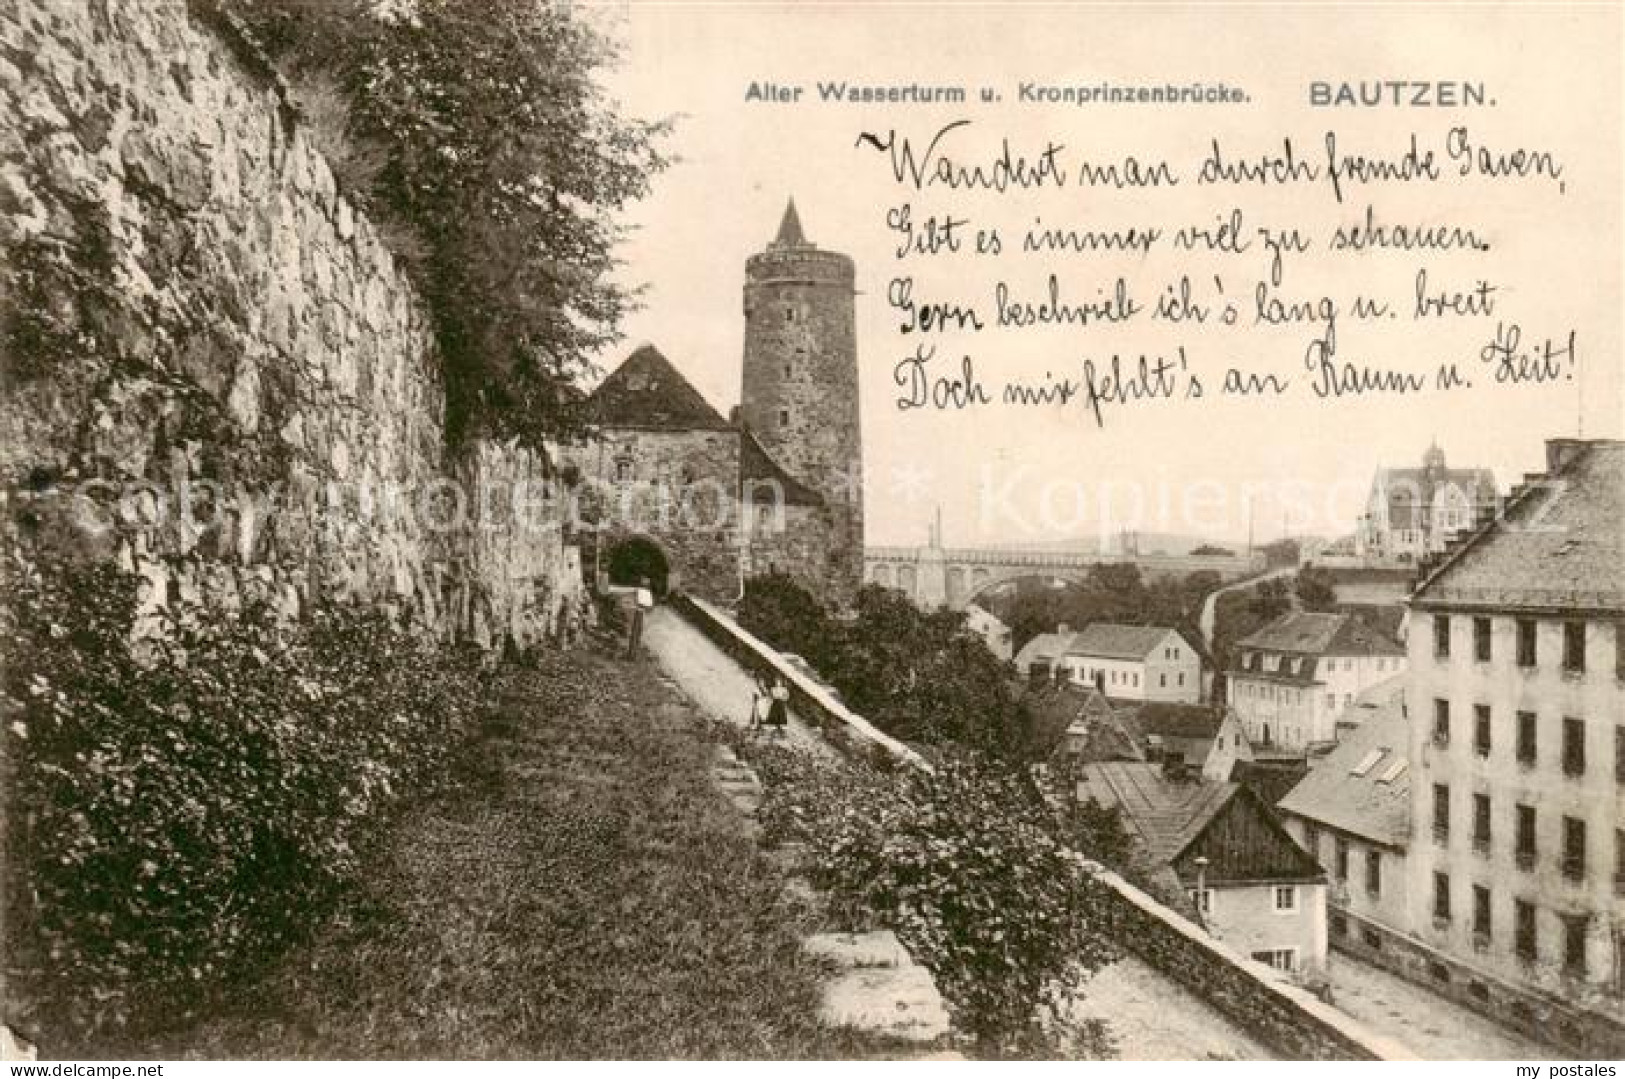 Alter Wasserturm u. Kronprinzenbrücke. BAUTZEN.
Wandert man durch fremde Gauen,
Gibt es immer viel zu schauen.
Gern beschrieb ich's lang u. breit,
Doch mir fehlt's an Raum u. Zeit!
Copy Protection ** Kopierschutz
www.delcampe.net
my_postales